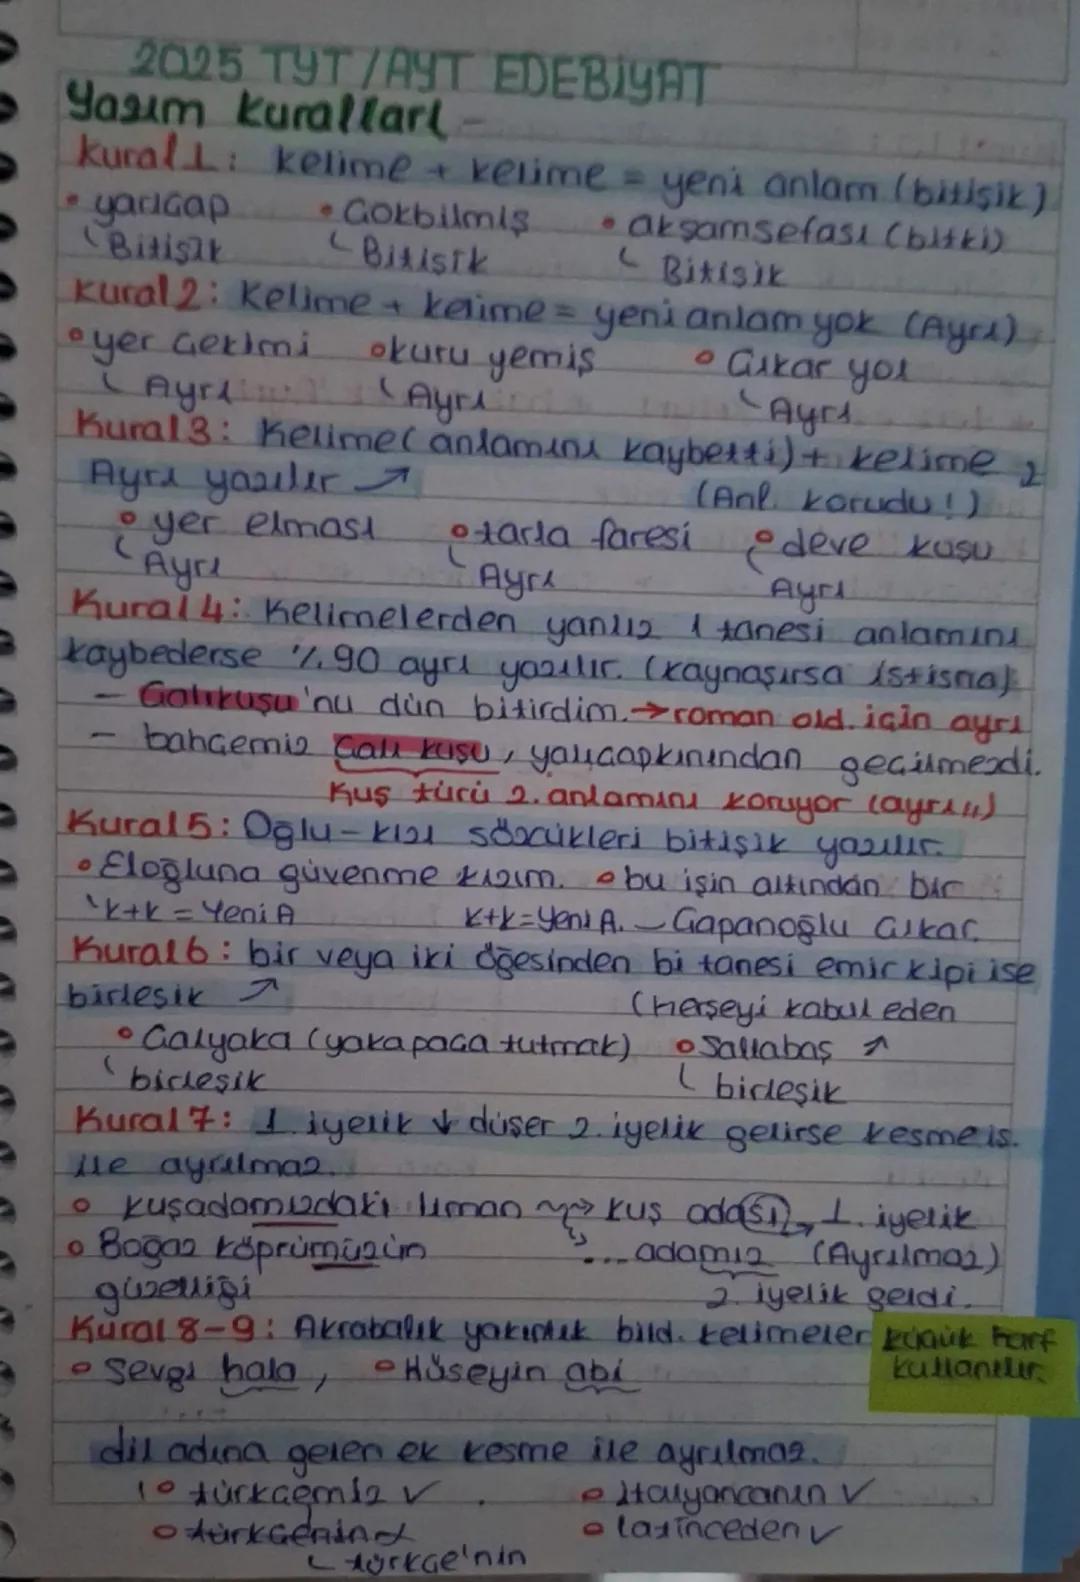 2025 TYT/AYT EDEBİYAT
Yazım Kuralları
Kural 1: kelime + kelime = yeni anlam (bitişik)
• yarıçap • Çokbilmiş • akşamsefası (bitki)
Bitişik Bitişik Bitişik
Kural 2: Kelime + kelime = yeni anlam yok (Ayrı)
• yer çekimi • kuru yemiş • Çıkar yol
Ayrı Ayrı Ayrı
Kural 3: Kelime (anlamını kaybetti) + kelime
Ayrı yazılır ↗ (Anl. korudu!)
• yer elması • tarla faresi • deve kuşu
Ayrı Ayrı Ayrı
Kural 4: Kelimelerden yanlız 1 tanesi anlamını
kaybederse %90 ayrı yazılır. (kaynaşırsa istisna)
– Çalıkuşu'nu dün bitirdim. → roman old. için ayrı
– bahçemiz Çalı kuşu, yalıçapkınından geçilmezdi.
Kuş türü 2. anlamını koruyor (ayrıı)
Kural 5: Oğlu – kızı sözcükleri bitişik yazılır.
• Eloğluna güvenme kızım. • bu işin altından bir
k+k = Yeni A k+k = Yeni A. – Çapanoğlu Çıkar.
Kural 6: bir veya iki öğesinden bi tanesi emir kipi ise
birleşik ↗ (herşeyi kabul eden
• Çalyaka (yaka paça tutmak) • Sallabaş ↗
birleşik birleşik
Kural 7: 1. iyelik ↓ düşer 2. iyelik gelirse kesme iş.
ile ayrılmaz.
• kuşadamızdaki liman → kuş adası → 1. iyelik
• Boğaz köprümüzün ... adamız (Ayrılmaz)
güzelliği 2. iyelik geldi.
Kural 8-9: Akrabalık yakınlık bild. kelimeler küçük harf
kullanılır.
• Sevgi hala, • Hüseyin abi
dil adına gelen ek kesme ile ayrılmaz.
• türkçemiz ✓ • italyancanın ✓
• türkçenin • latinceden ✓
türkçe'nin